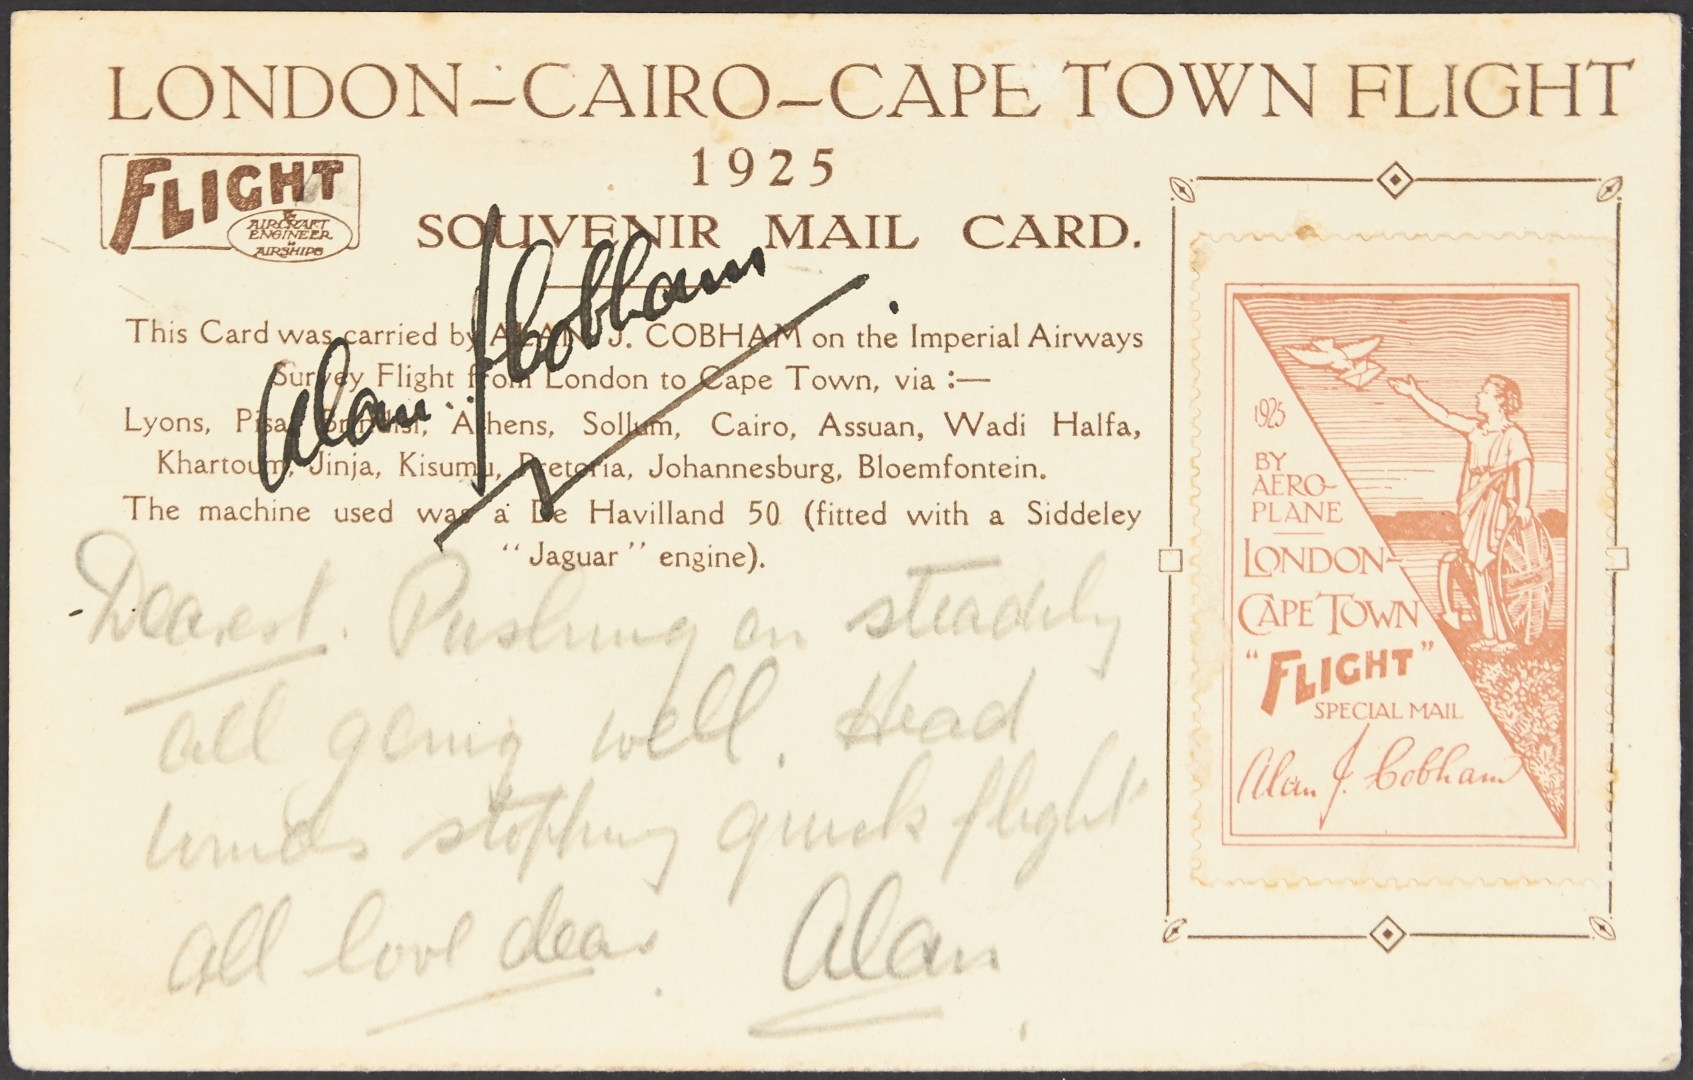 LONDON–CAIRO–CAPE TOWN FLIGHT
1925
FLIGHT
The
AIRCRAFT
ENGINEER
&
AIRSHIPS
SOUVENIR MAIL CARD.
Alan J Cobham
This Card was carried by ALAN J. COBHAM on the Imperial Airways
Survey Flight from London to Cape Town, via :—
Lyons, Pisa, Brindisi, Athens, Sollum, Cairo, Assuan, Wadi Halfa,
Khartoum, Jinja, Kisumu, Pretoria, Johannesburg, Bloemfontein.
The machine used was a De Havilland 50 (fitted with a Siddeley
“Jaguar” engine).
Dearest. Pushing on steadily
all going well. Head
winds stopping quick flight
All love dear. Alan
1925
BY
AERO-
PLANE
LONDON-
CAPE TOWN
“FLIGHT”
SPECIAL MAIL
Alan J. Cobham